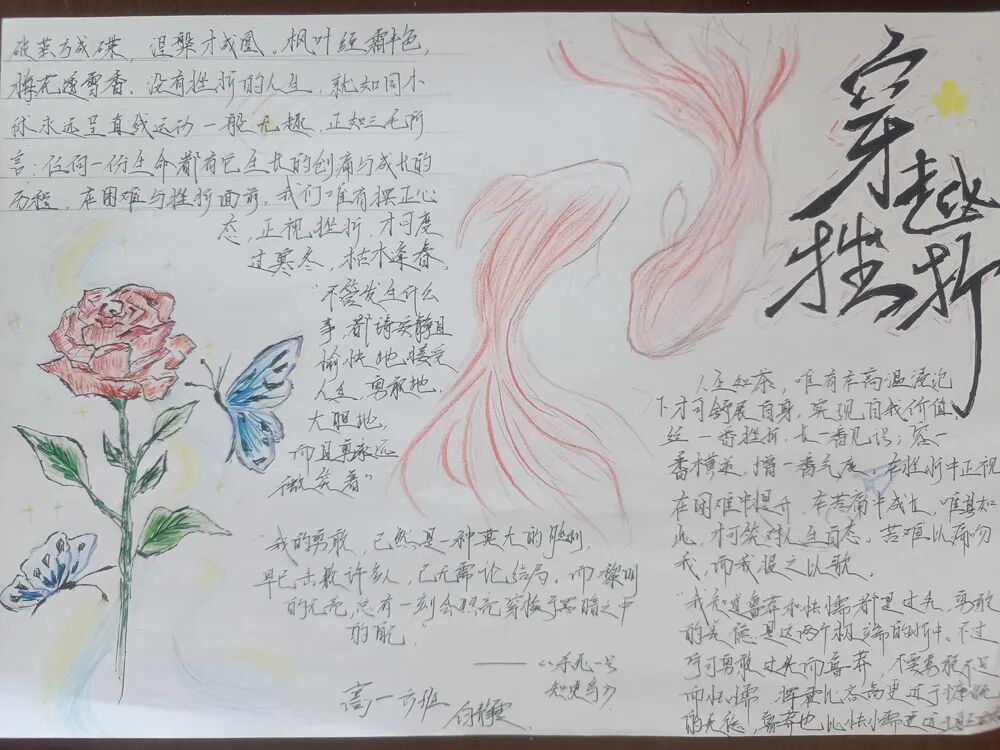 穿越
挫折
破茧方成碟，涅槃才成凰，枫叶经霜十色，
梅花透雪香。没有挫折的人生，就如同小
球永远呈直线运动一般无趣。正如三毛所
言：任何一份生命都有它生长的创痛与成长的
历程，在困难与挫折面前，我们唯有摆正心
态，正视挫折，才可度
过寒冬，枯木逢春。
“不管发生什么
事，都请安静且
愉快地接受
人生，勇敢地，
大胆地，
而且永远
微笑着”
“我的勇敢，已然是一种莫大的胜利，
早已击败许多人，已无需论结局，而黎明
的光亮，总有一刻会照亮穿梭于黑暗之中
的
——《杀死一只
知更鸟》
高一六班
人生如茶，唯有在高温浸泡
下才可舒展自身，实现自我价值，
经一番挫折，长一番见识；容一
番横逆，增一番气度，在挫折中正视
在困难中提升，在苦痛中成长，唯其如
此，才可笑对人生百态。苦难以痛吻
我，而我报之以歌。
“我知道鲁莽和怯懦都是过失，勇敢
的美德是这两个极端的折中。不过
宁可勇敢过头而鲁莽，不要勇敢不足
而怯懦，挥霍比吝啬更近于慷慨
的美德，鲁莽也比怯懦更近于